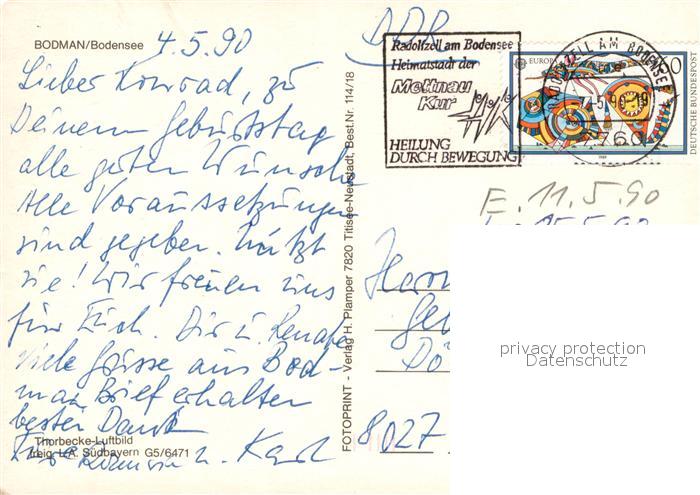 BODMAN/Bodensee
4.5.90
Lieber Konrad, zu
Deinem Geburtstag
alle guten Wünsche
Alle Voraussetzungen
sind gegeben. Nützt
sie! Wir freuen uns
für Euch. Dir u. Renate
viele Grüsse aus Bod-
man Brief erhalten
besten Dank
u. Karl
Thorbecke-Luftbild
freig. d. LA. Südbayern G5/6471
FOTOPRINT - Verlag H. Plamper 7820 Titisee-Neustadt, Best.Nr. 114/18
DDR
Radolfzell am Bodensee
Heimatstadt der
Mettnau
Kur
HEILUNG
DURCH BEWEGUNG
RADOLFZELL AM BODENSEE
7760
EUROPA
DEUTSCHE BUNDESPOST
E. 11.5.90
Herrn
8027
privacy protection
Datenschutz